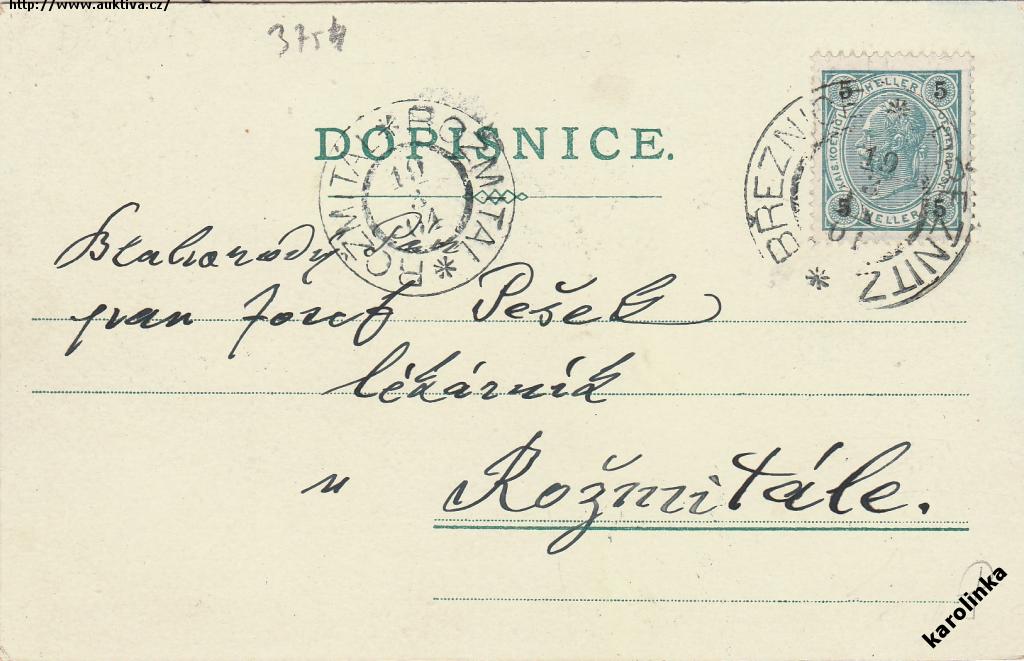 http://www.auktiva.cz/
3754
DOPISNICE.
ROŽMITÁL * ROŽMITAL *
19
3
01
5 HELLER 5
5 HELLER 5
BŘEZNICE * BŘEZNITZ *
19
3
01
Blahorodý
pan Josef Pešek
lékárník
v Rožmitále.
karolinka